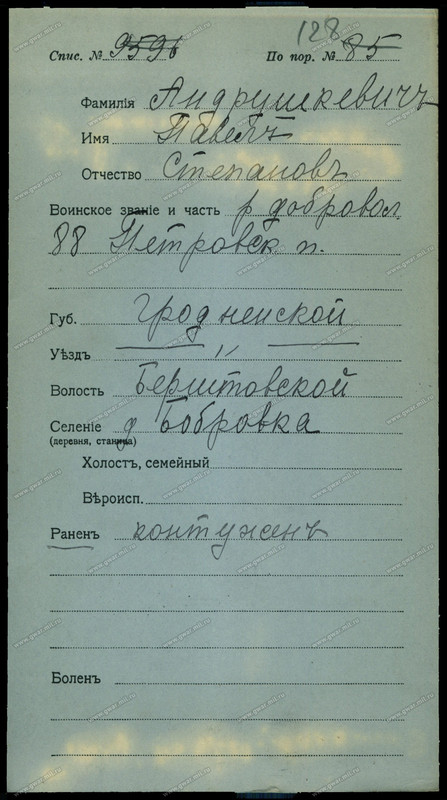 128
Спис. № 9596 По пор. № 85
Фамилія Андрушкевичъ
Имя Павелъ
Отчество Степановъ
Воинское званіе и часть р добровол.
88 Петровск п.
Губ. Гродненской
Уѣздъ "
Волость Берштовской
Селеніе д Бобровка
(деревня, станица)
Холостъ, семейный
Вѣроисп.
Раненъ контуженъ
Боленъ